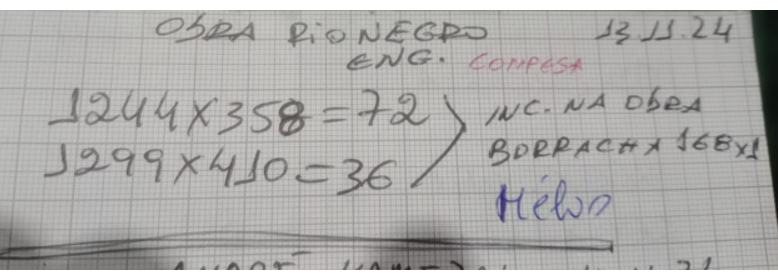 OBRA RIO NEGRO 13.11.24
ENG. CONPESA
1244X358=72
1299X410=36
INC. NA OBRA
BORRACHA 168x1
Hélio